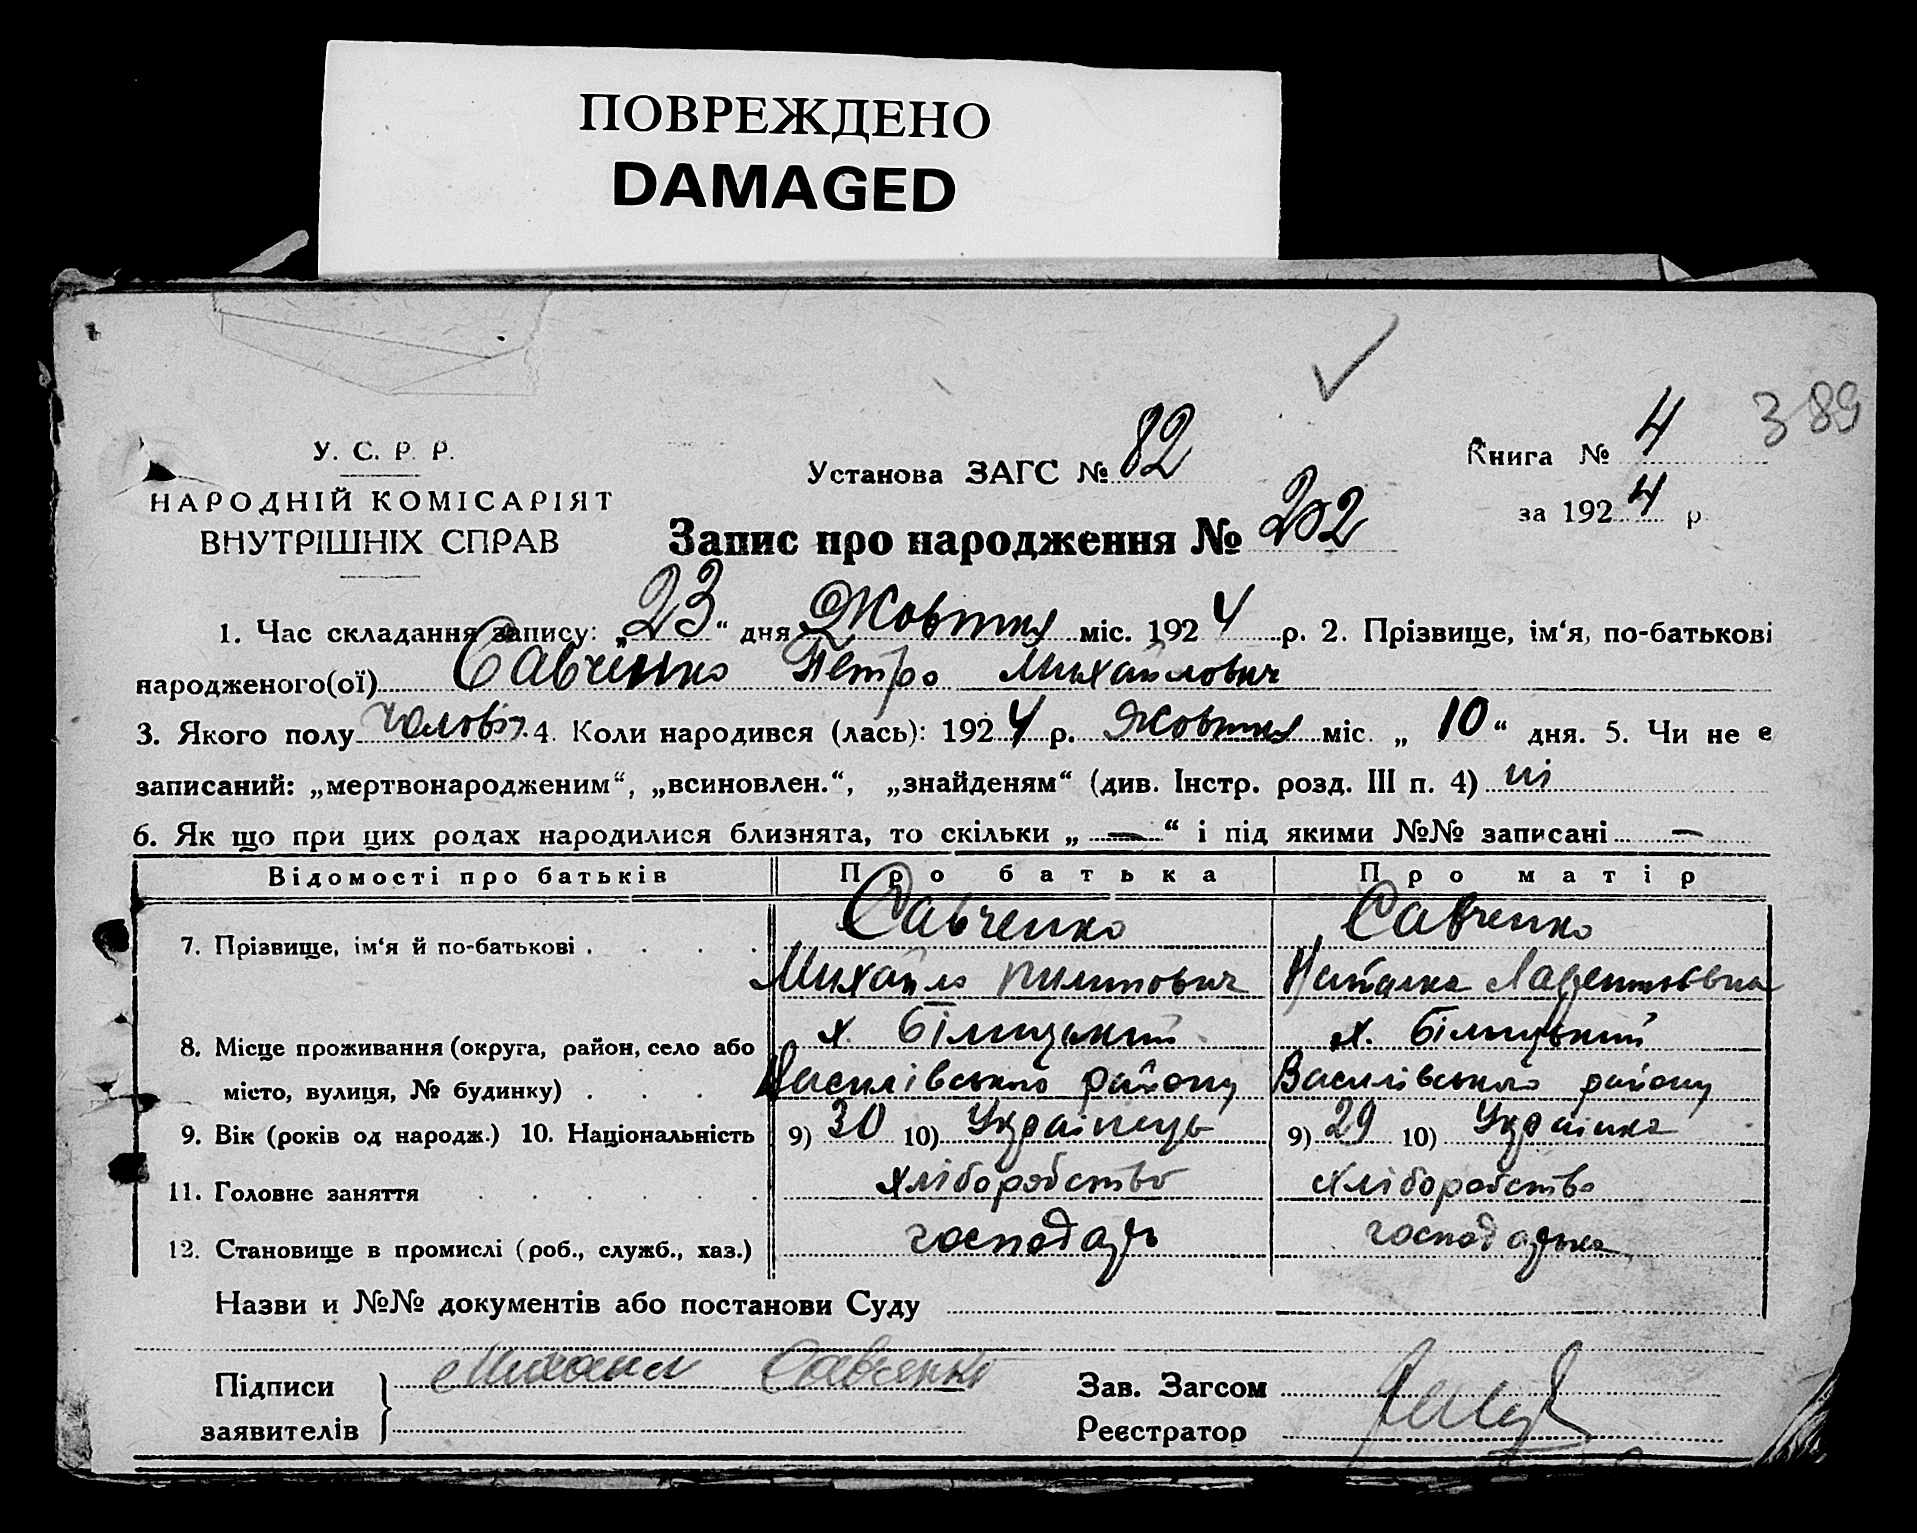 ПОВРЕЖДЕНО
DAMAGED
389
У. С. Р. Р.
НАРОДНІЙ КОМІСАРІЯТ
ВНУТРІШНІХ СПРАВ
Установа ЗАГС № 82
Книга № 4
за 1924 р.
Запис про народження № 202
1. Час складання запису: „23“ дня Жовтня міс. 1924 р. 2. Прізвище, ім‘я, по-батькові
народженого(ої) Савченко Петро Михайлович
3. Якого полу чолов. 4. Коли народився (лась): 1924 р. Жовтня міс. „10“ дня. 5. Чи не є
записаний: „мертвонародженим“, „всиновлен.“, „знайденям“ (див. Інстр. розд. III п. 4) ні
6. Як що при цих родах народилися близнята, то скільки „ — “ і під якими №№ записані —
Відомості про батьків Про батька Про матір
7. Прізвище, ім‘я й по-батькові Савченко Савченко
Михайло Пилипович Наталка Лаврентьевна
8. Місце проживання (округа, район, село або х. Біліцький х. Біліцький
місто, вулиця, № будинку) Василівського району Василівського району
9. Вік (років од народж.) 10. Національність 9) 30 10) Українець 9) 29 10) Українка
11. Головне заняття хліборобство хліборобство
12. Становище в промислі (роб., служб., хаз.) господарь господарька
Назви и №№ документів або постанови Суду
Підписи Михаил Савченко Зав. Загсом
заявителів Реєстратор